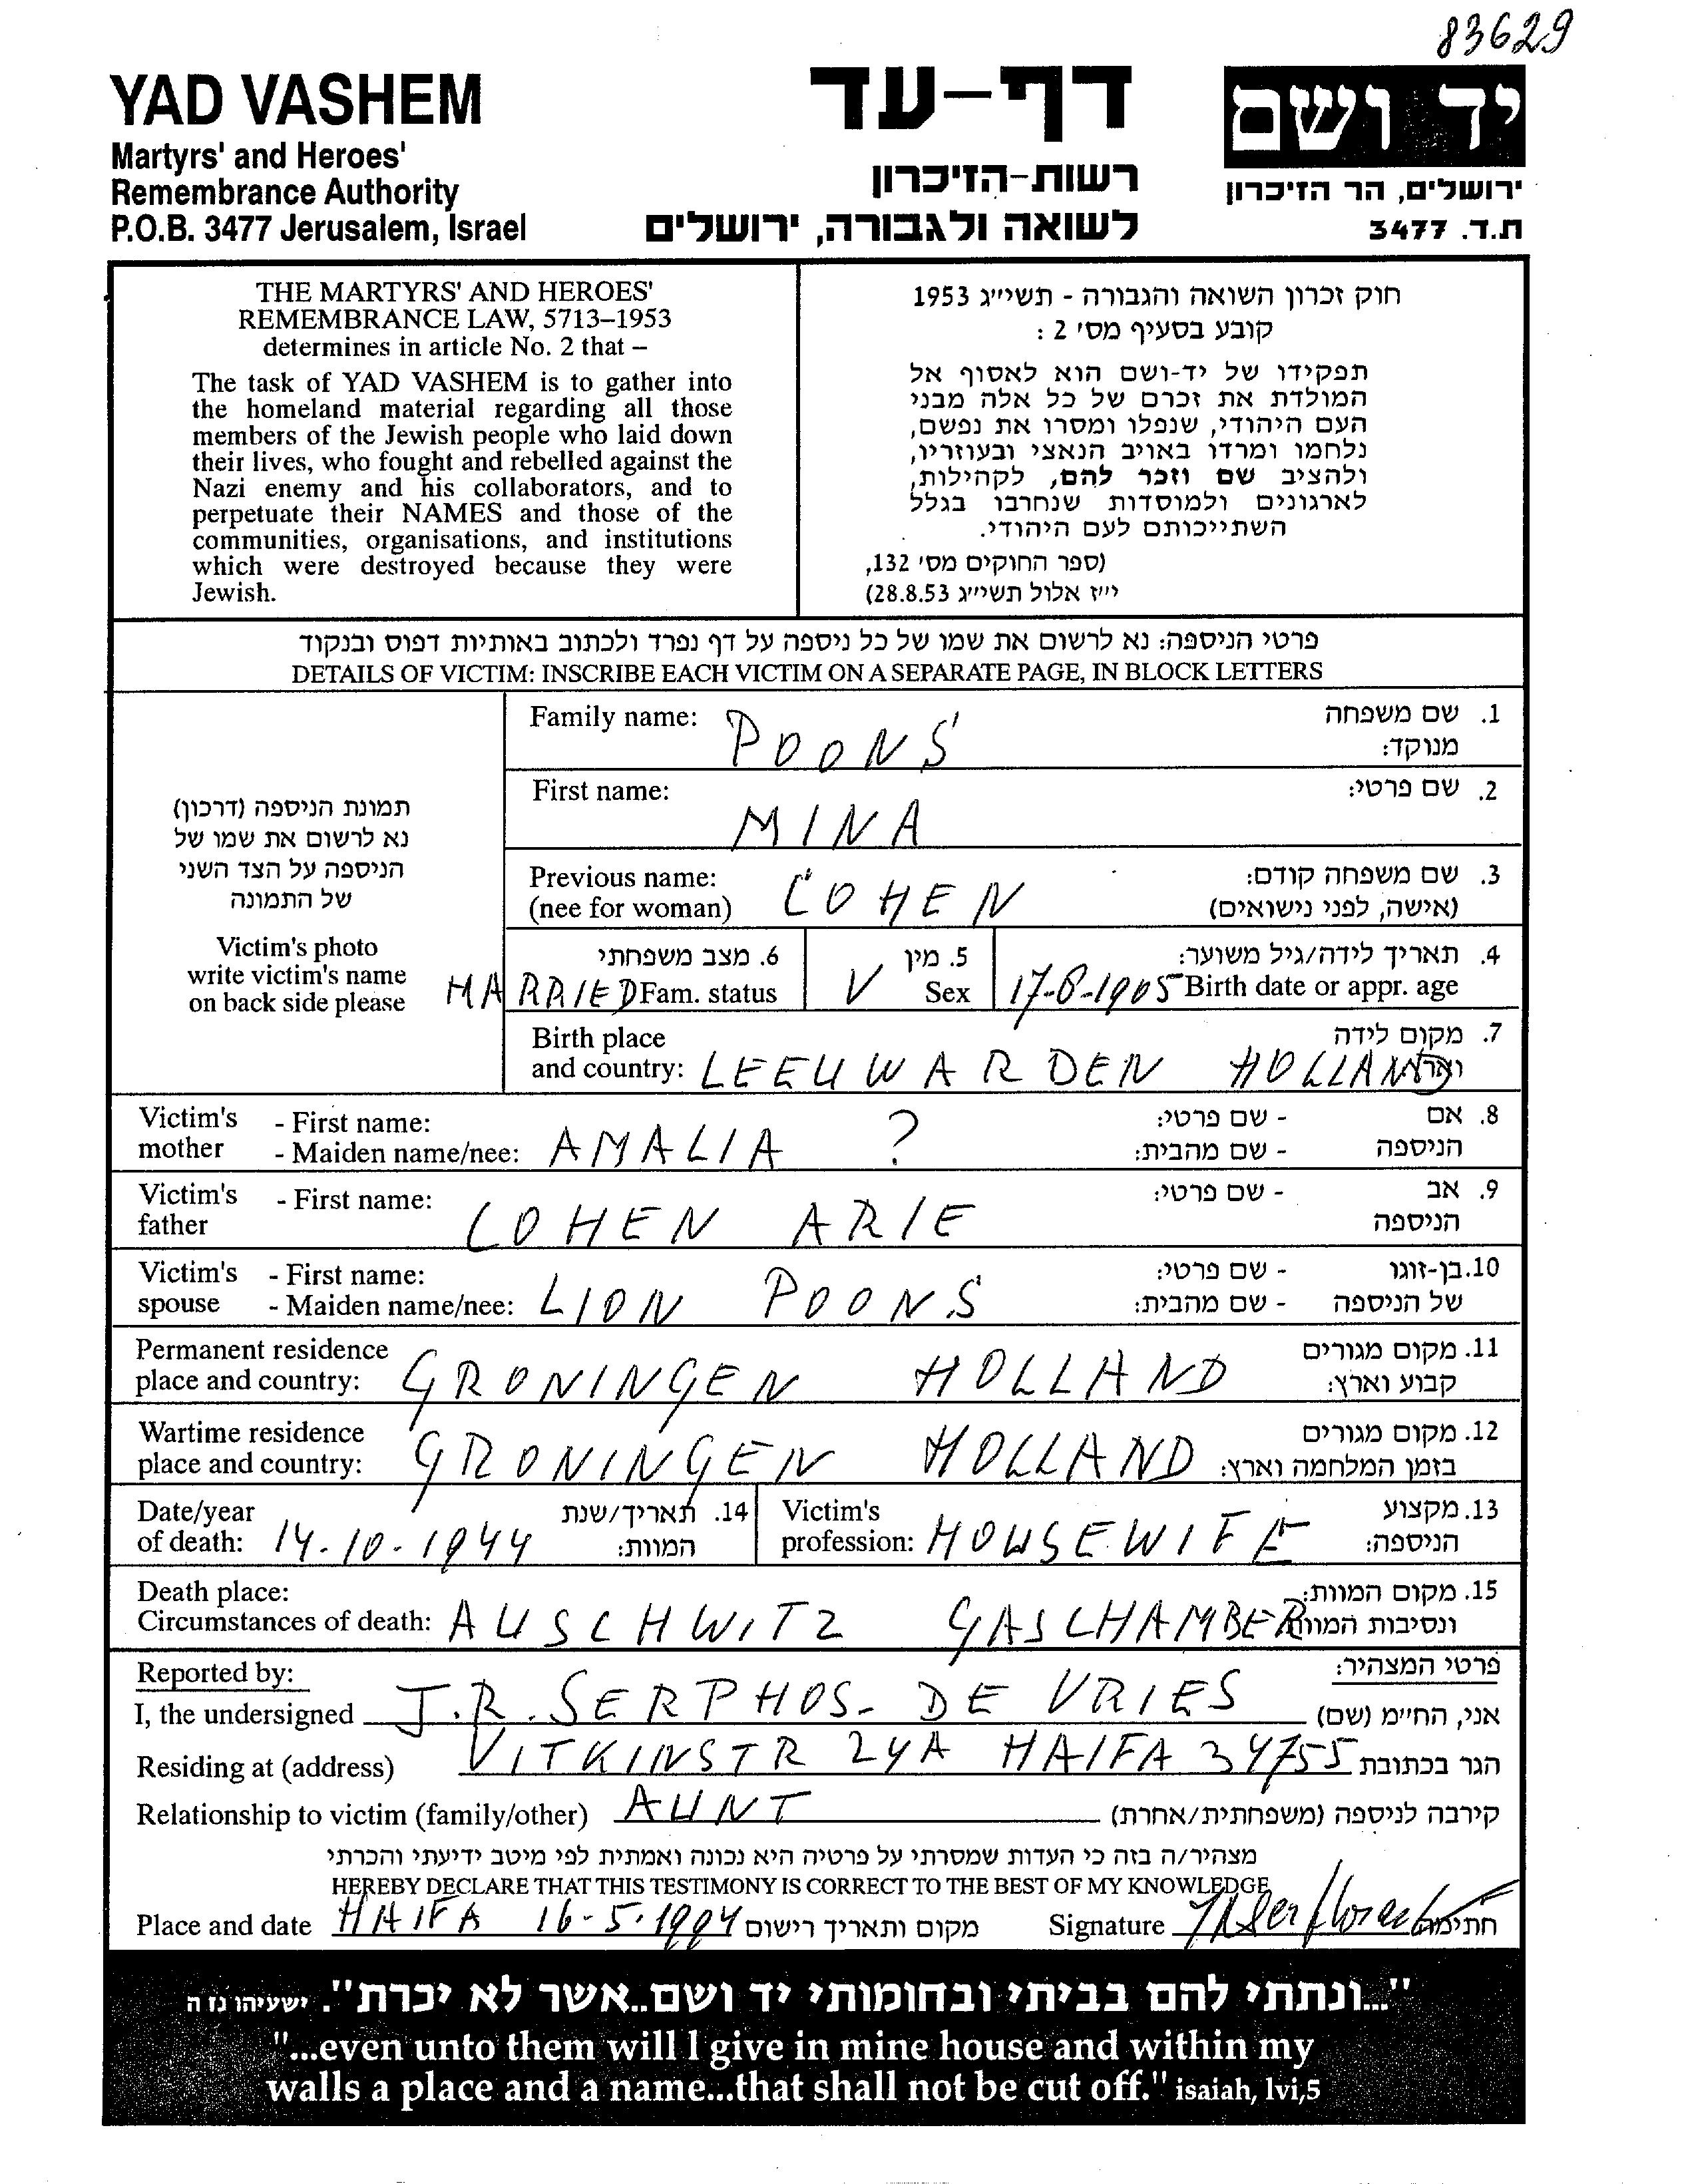 83629
YAD VASHEM
Martyrs' and Heroes'
Remembrance Authority
P.O.B. 3477 Jerusalem, Israel
דף-עד
רשות-הזיכרון
לשואה ולגבורה, ירושלים
יד ושם
ירושלים, הר הזיכרון
ת.ד. 3477
THE MARTYRS' AND HEROES'
REMEMBRANCE LAW, 5713–1953
determines in article No. 2 that –
The task of YAD VASHEM is to gather into
the homeland material regarding all those
members of the Jewish people who laid down
their lives, who fought and rebelled against the
Nazi enemy and his collaborators, and to
perpetuate their NAMES and those of the
communities, organisations, and institutions
which were destroyed because they were
Jewish.
חוק זכרון השואה והגבורה - תשי״ג 1953
קובע בסעיף מס' 2 :
תפקידו של יד-ושם הוא לאסוף אל
המולדת את זכרם של כל אלה מבני
העם היהודי, שנפלו ומסרו את נפשם,
נלחמו ומרדו באויב הנאצי ובעוזריו,
ולהציב שם וזכר להם, לקהילות,
לארגונים ולמוסדות שנחרבו בגלל
השתייכותם לעם היהודי.
(ספר החוקים מס' 132,
י״ז אלול תשי״ג 28.8.53)
פרטי הניספה: נא לרשום את שמו של כל ניספה על דף נפרד ולכתוב באותיות דפוס ובנקוד
DETAILS OF VICTIM: INSCRIBE EACH VICTIM ON A SEPARATE PAGE, IN BLOCK LETTERS
תמונת הניספה (דרכון)
נא לרשום את שמו של
הניספה על הצד השני
של התמונה
Victim's photo
write victim's name
on back side please
Family name: POONS 1. שם משפחה
מנוקד:
First name: MINA 2. שם פרטי:
Previous name: COHEN 3. שם משפחה קודם:
(nee for woman) (אישה, לפני נישואים)
6. מצב משפחתי 5. מין 4. תאריך לידה/גיל משוער:
MARRIED Fam. status V Sex 17-8-1905 Birth date or appr. age
Birth place 7. מקום לידה
and country: LEEUWARDEN HOLLAND
Victim's - First name: - שם פרטי: 8. אם
mother - Maiden name/nee: AMALIA ? - שם מהבית: הניספה
Victim's - First name: - שם פרטי: 9. אב
father COHEN ARIE הניספה
Victim's - First name: - שם פרטי: 10. בן-זוגו
spouse - Maiden name/nee: LION POONS - שם מהבית: של הניספה
Permanent residence 11. מקום מגורים
place and country: GRONINGEN HOLLAND קבוע וארץ:
Wartime residence 12. מקום מגורים
place and country: GRONINGEN HOLLAND בזמן המלחמה וארץ:
Date/year 14. תאריך/שנת Victim's 13. מקצוע
of death: 14-10-1944 המוות: profession: HOUSEWIFE הניספה:
Death place: 15. מקום המוות:
Circumstances of death: AUSCHWITZ GASCHAMBER ונסיבות המוות
Reported by: פרטי המצהיר:
I, the undersigned J.R. SERPHOS-DE VRIES אני, הח״מ (שם)
Residing at (address) VITKINSTR 24A HAIFA 34755 הגר בכתובת
Relationship to victim (family/other) AUNT קירבה לניספה (משפחתית/אחרת)
מצהיר/ה בזה כי העדות שמסרתי על פרטיה היא נכונה ואמתית לפי מיטב ידיעתי והכרתי
HEREBY DECLARE THAT THIS TESTIMONY IS CORRECT TO THE BEST OF MY KNOWLEDGE
Place and date HAIFA 16-5-1994 מקום ותאריך רישום Signature חתימה
"...ונתתי להם בביתי ובחומותי יד ושם..אשר לא יכרת". ישעיהו נז ה
"...even unto them will I give in mine house and within my
walls a place and a name...that shall not be cut off." isaiah, lvi,5